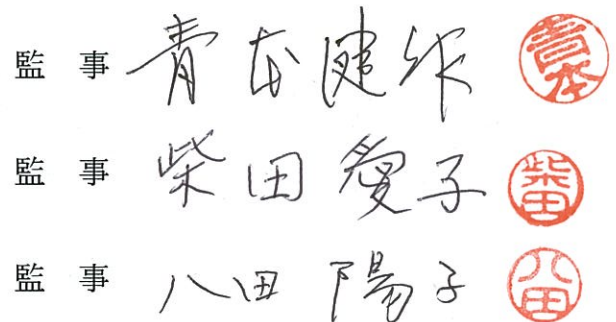 監 事 青本健作 青本
監 事 柴田愛子 柴田
監 事 八田陽子 八田